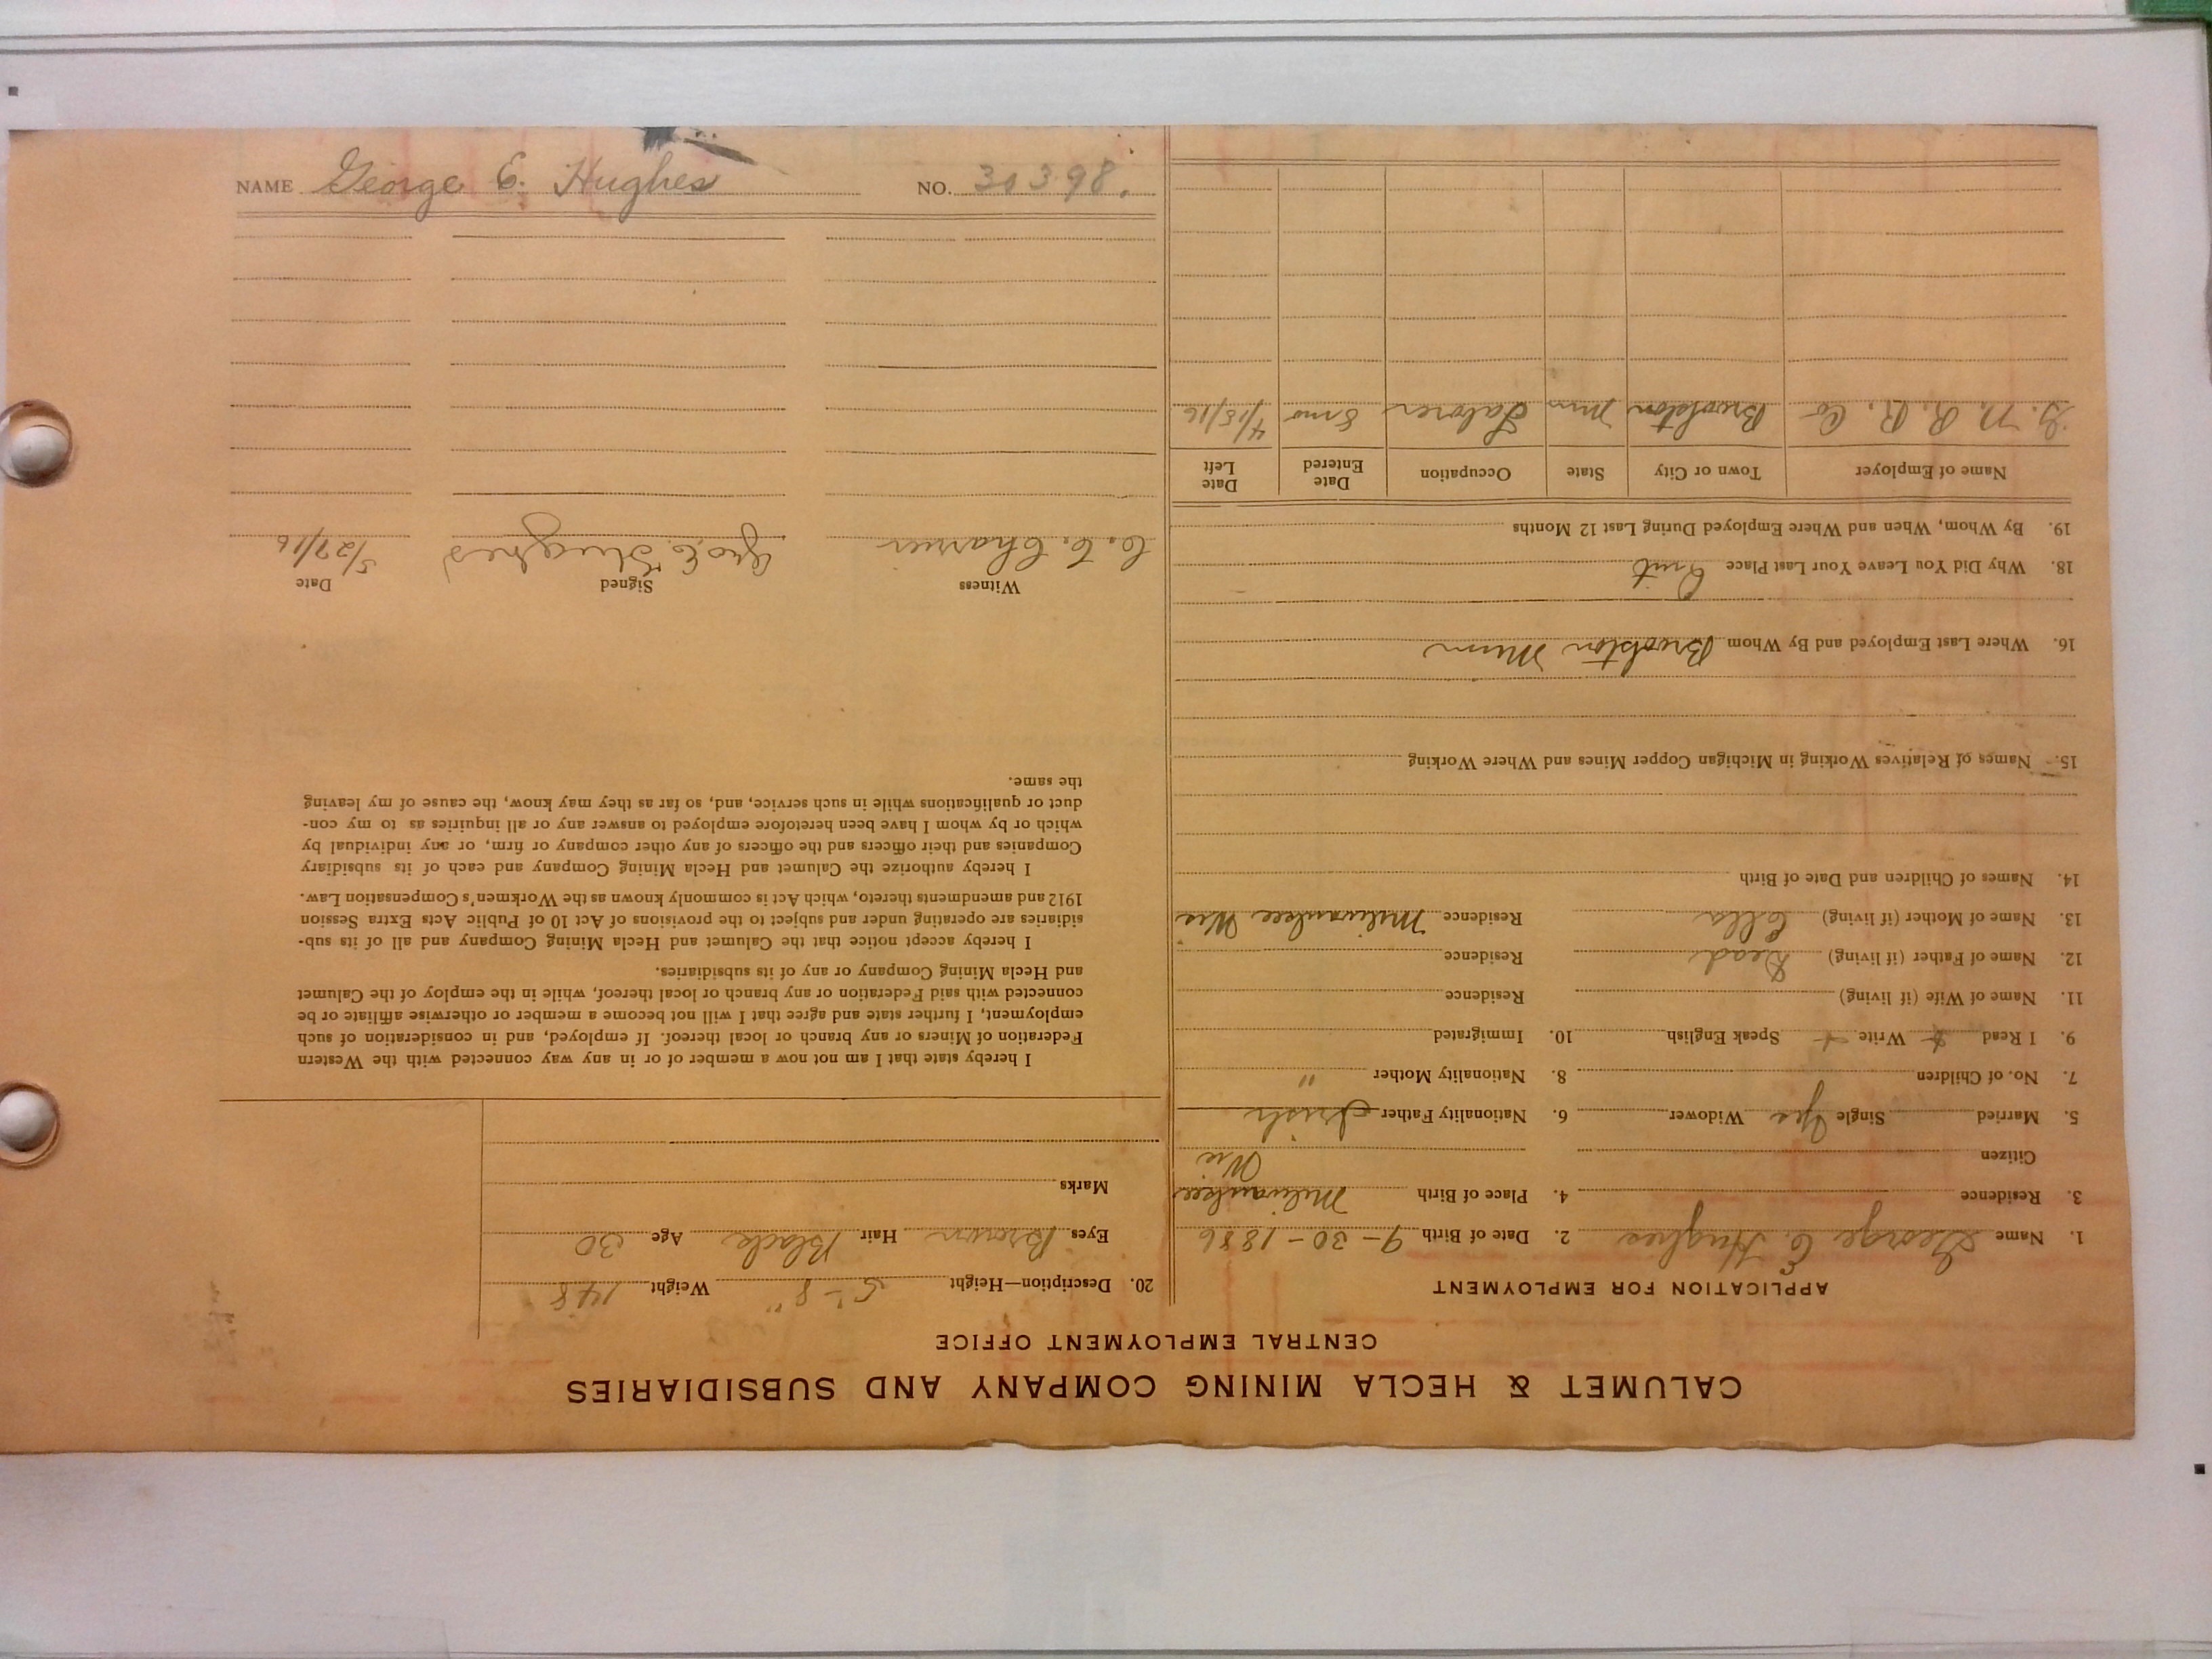 CALUMET & HECLA MINING COMPANY AND SUBSIDIARIES
CENTRAL EMPLOYMENT OFFICE
APPLICATION FOR EMPLOYMENT
1. Name George E. Hughes 2. Date of Birth 9-30-1886
3. Residence 4. Place of Birth Milwaukee
Citizen Wis
5. Married Single Yes Widower 6. Nationality Father Irish
7. No. of Children 8. Nationality Mother "
9. I Read Write Speak English 10. Immigrated
11. Name of Wife (if living) Residence
12. Name of Father (if living) Dead Residence
13. Name of Mother (if living) Ella Residence Milwaukee Wis
14. Names of Children and Date of Birth
15. Names of Relatives Working in Michigan Copper Mines and Where Working
16. Where Last Employed and By Whom Brookston Minn
18. Why Did You Leave Your Last Place Quit
19. By Whom, When and Where Employed During Last 12 Months
Name of Employer Town or City State Occupation Date Entered Date Left
G. N. R. R. Co Brookston Minn Laborer 8 mo 4/15/16
20. Description—Height 5'-8" Weight 148
Eyes Brown Hair Black Age 30
Marks
I hereby state that I am not now a member of or in any way connected with the Western
Federation of Miners or any branch or local thereof. If employed, and in consideration of such
employment, I further state and agree that I will not become a member or otherwise affiliate or be
connected with said Federation or any branch or local thereof, while in the employ of the Calumet
and Hecla Mining Company or any of its subsidiaries.
I hereby accept notice that the Calumet and Hecla Mining Company and all of its sub-
sidiaries are operating under and subject to the provisions of Act 10 of Public Acts Extra Session
1912 and amendments thereto, which Act is commonly known as the Workmen's Compensation Law.
I hereby authorize the Calumet and Hecla Mining Company and each of its subsidiary
Companies and their officers and the officers of any other company or firm, or any individual by
which or by whom I have been heretofore employed to answer any or all inquiries as to my con-
duct or qualifications while in such service, and, so far as they may know, the cause of my leaving
the same.
Witness Signed Date
Geo. E. Hughes 5/27/16
NAME George E. Hughes NO. 30398.